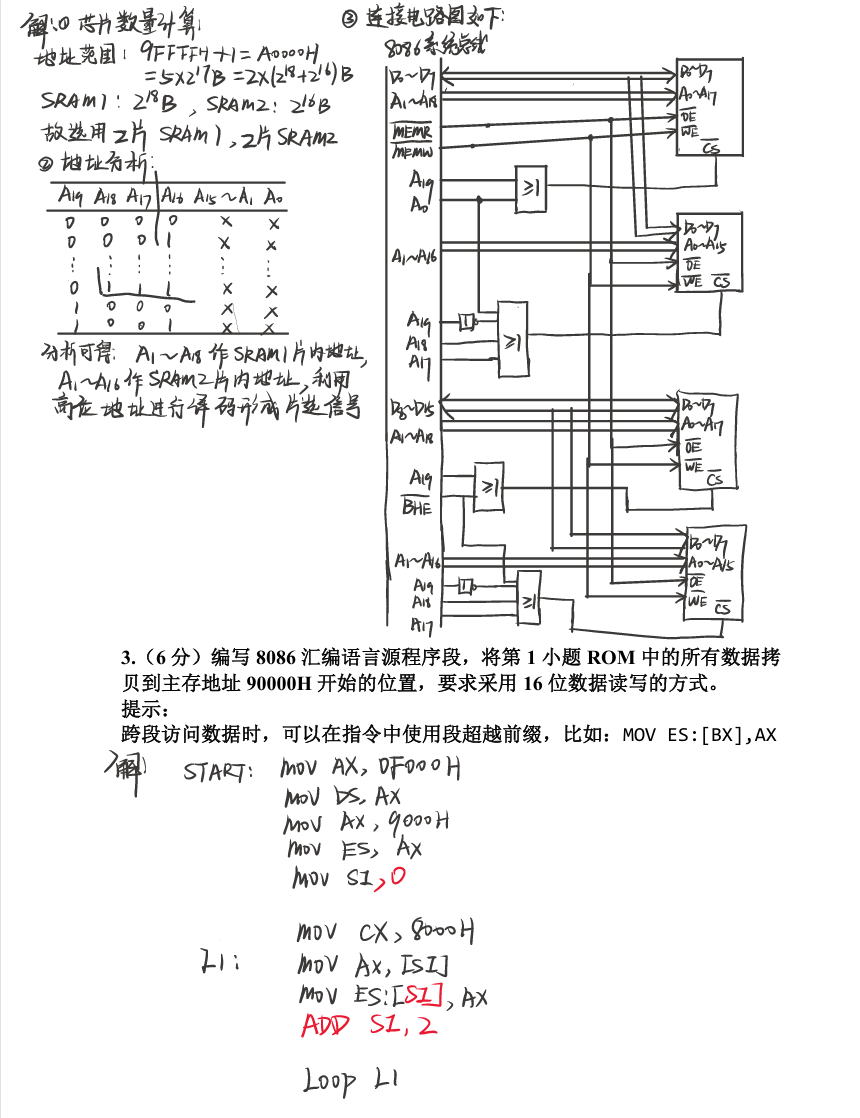 解:① 芯片数量计算:
地址范围: 9FFFFH+1=A0000H
=5×2¹⁷B=2×(2¹⁸+2¹⁶)B
SRAM1: 2¹⁸B, SRAM2: 2¹⁶B
故选用2片 SRAM1, 2片SRAM2
② 地址分析:
A19 A18 A17 A16 A15~A1 A0
0 0 0 0 × ×
0 0 0 1 × ×
⋮ ⋮ ⋮ ⋮ ⋮ ⋮
0 1 1 1 × ×
1 0 0 0 × ×
1 0 0 1 × ×
分析可得: A1~A18 作 SRAM1片内地址,
A1~A16作SRAM2片内地址,利用
高位地址进行译码形成片选信号
③ 连接电路图如下:
8086系统总线
D0~D7
A1~A18
M̅E̅M̅R̅
M̅E̅M̅W̅
A19
A0
≥1
D0~D7
A0~A17
O̅E̅
W̅E̅
C̅S̅
A1~A16
A19
A18
A17
1
≥1
D0~D7
A0~A15
O̅E̅
W̅E̅ C̅S̅
D8~D15
A1~A18
A19
B̅H̅E̅
≥1
D0~D7
A0~A17
O̅E̅
W̅E̅
C̅S̅
A1~A16
A19
A18
A17
1
≥1
D0~D7
A0~A15
O̅E̅
W̅E̅ C̅S̅
3.(6 分)编写 8086 汇编语言源程序段,将第 1 小题 ROM 中的所有数据拷
贝到主存地址 90000H 开始的位置,要求采用 16 位数据读写的方式。
提示:
跨段访问数据时,可以在指令中使用段超越前缀,比如:MOV ES:[BX],AX
解:
START: MOV AX, 0F000H
MOV DS, AX
MOV AX, 9000H
MOV ES, AX
MOV SI,0
MOV CX, 8000H
L1: MOV AX, [SI]
MOV ES:[SI], AX
ADD SI, 2
LOOP L1